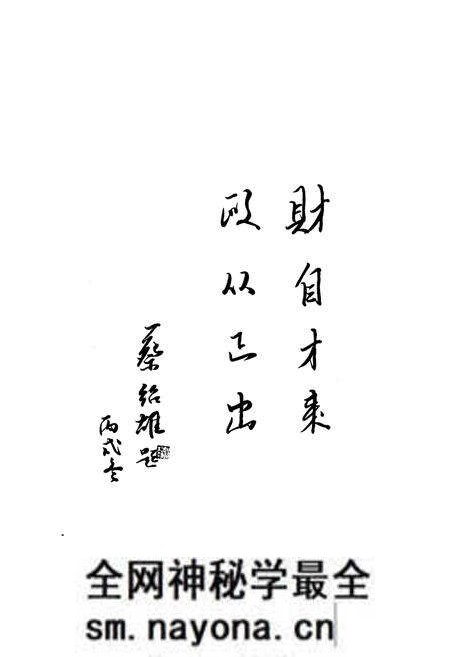 財自才来
政从正出
蔡绍雄题
丙戌冬
全网神秘学最全
sm.nayona.cn